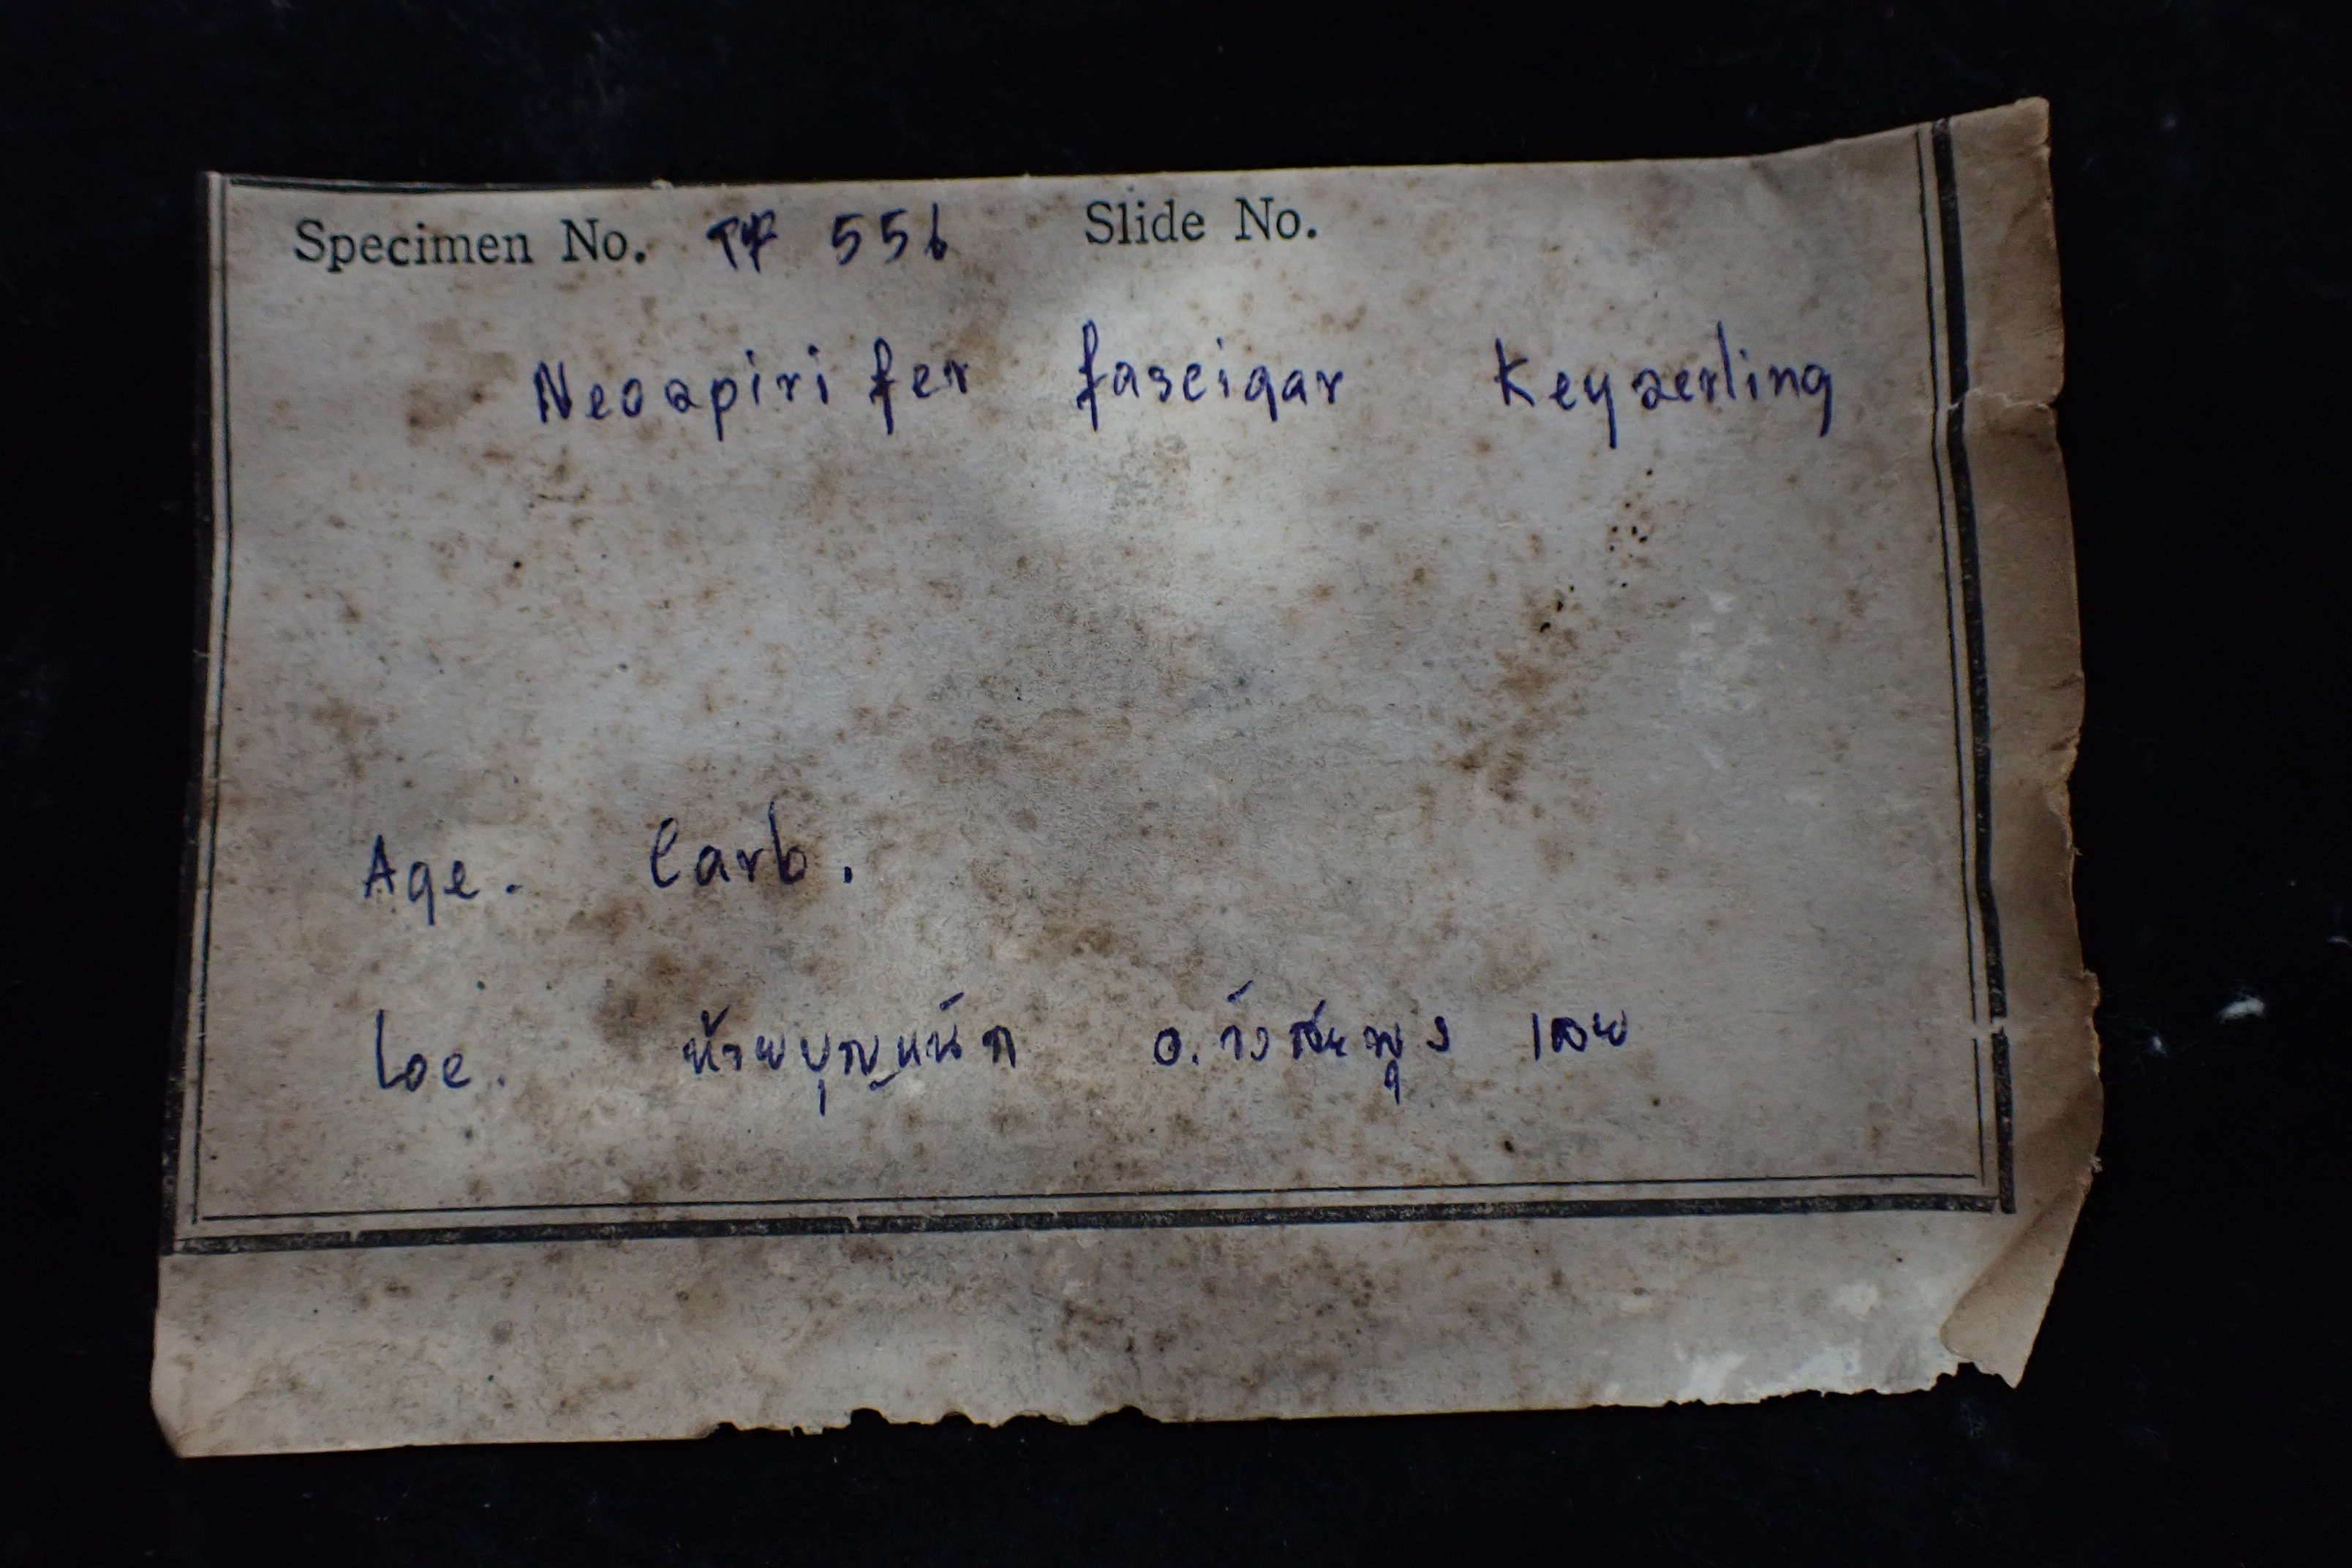 Specimen No. TF 556 Slide No.
Neospirifer fasciqar Keyserling
Age. Carb.
Loc. ห้วยบุญหนัก อ.วังสะพุง เลย